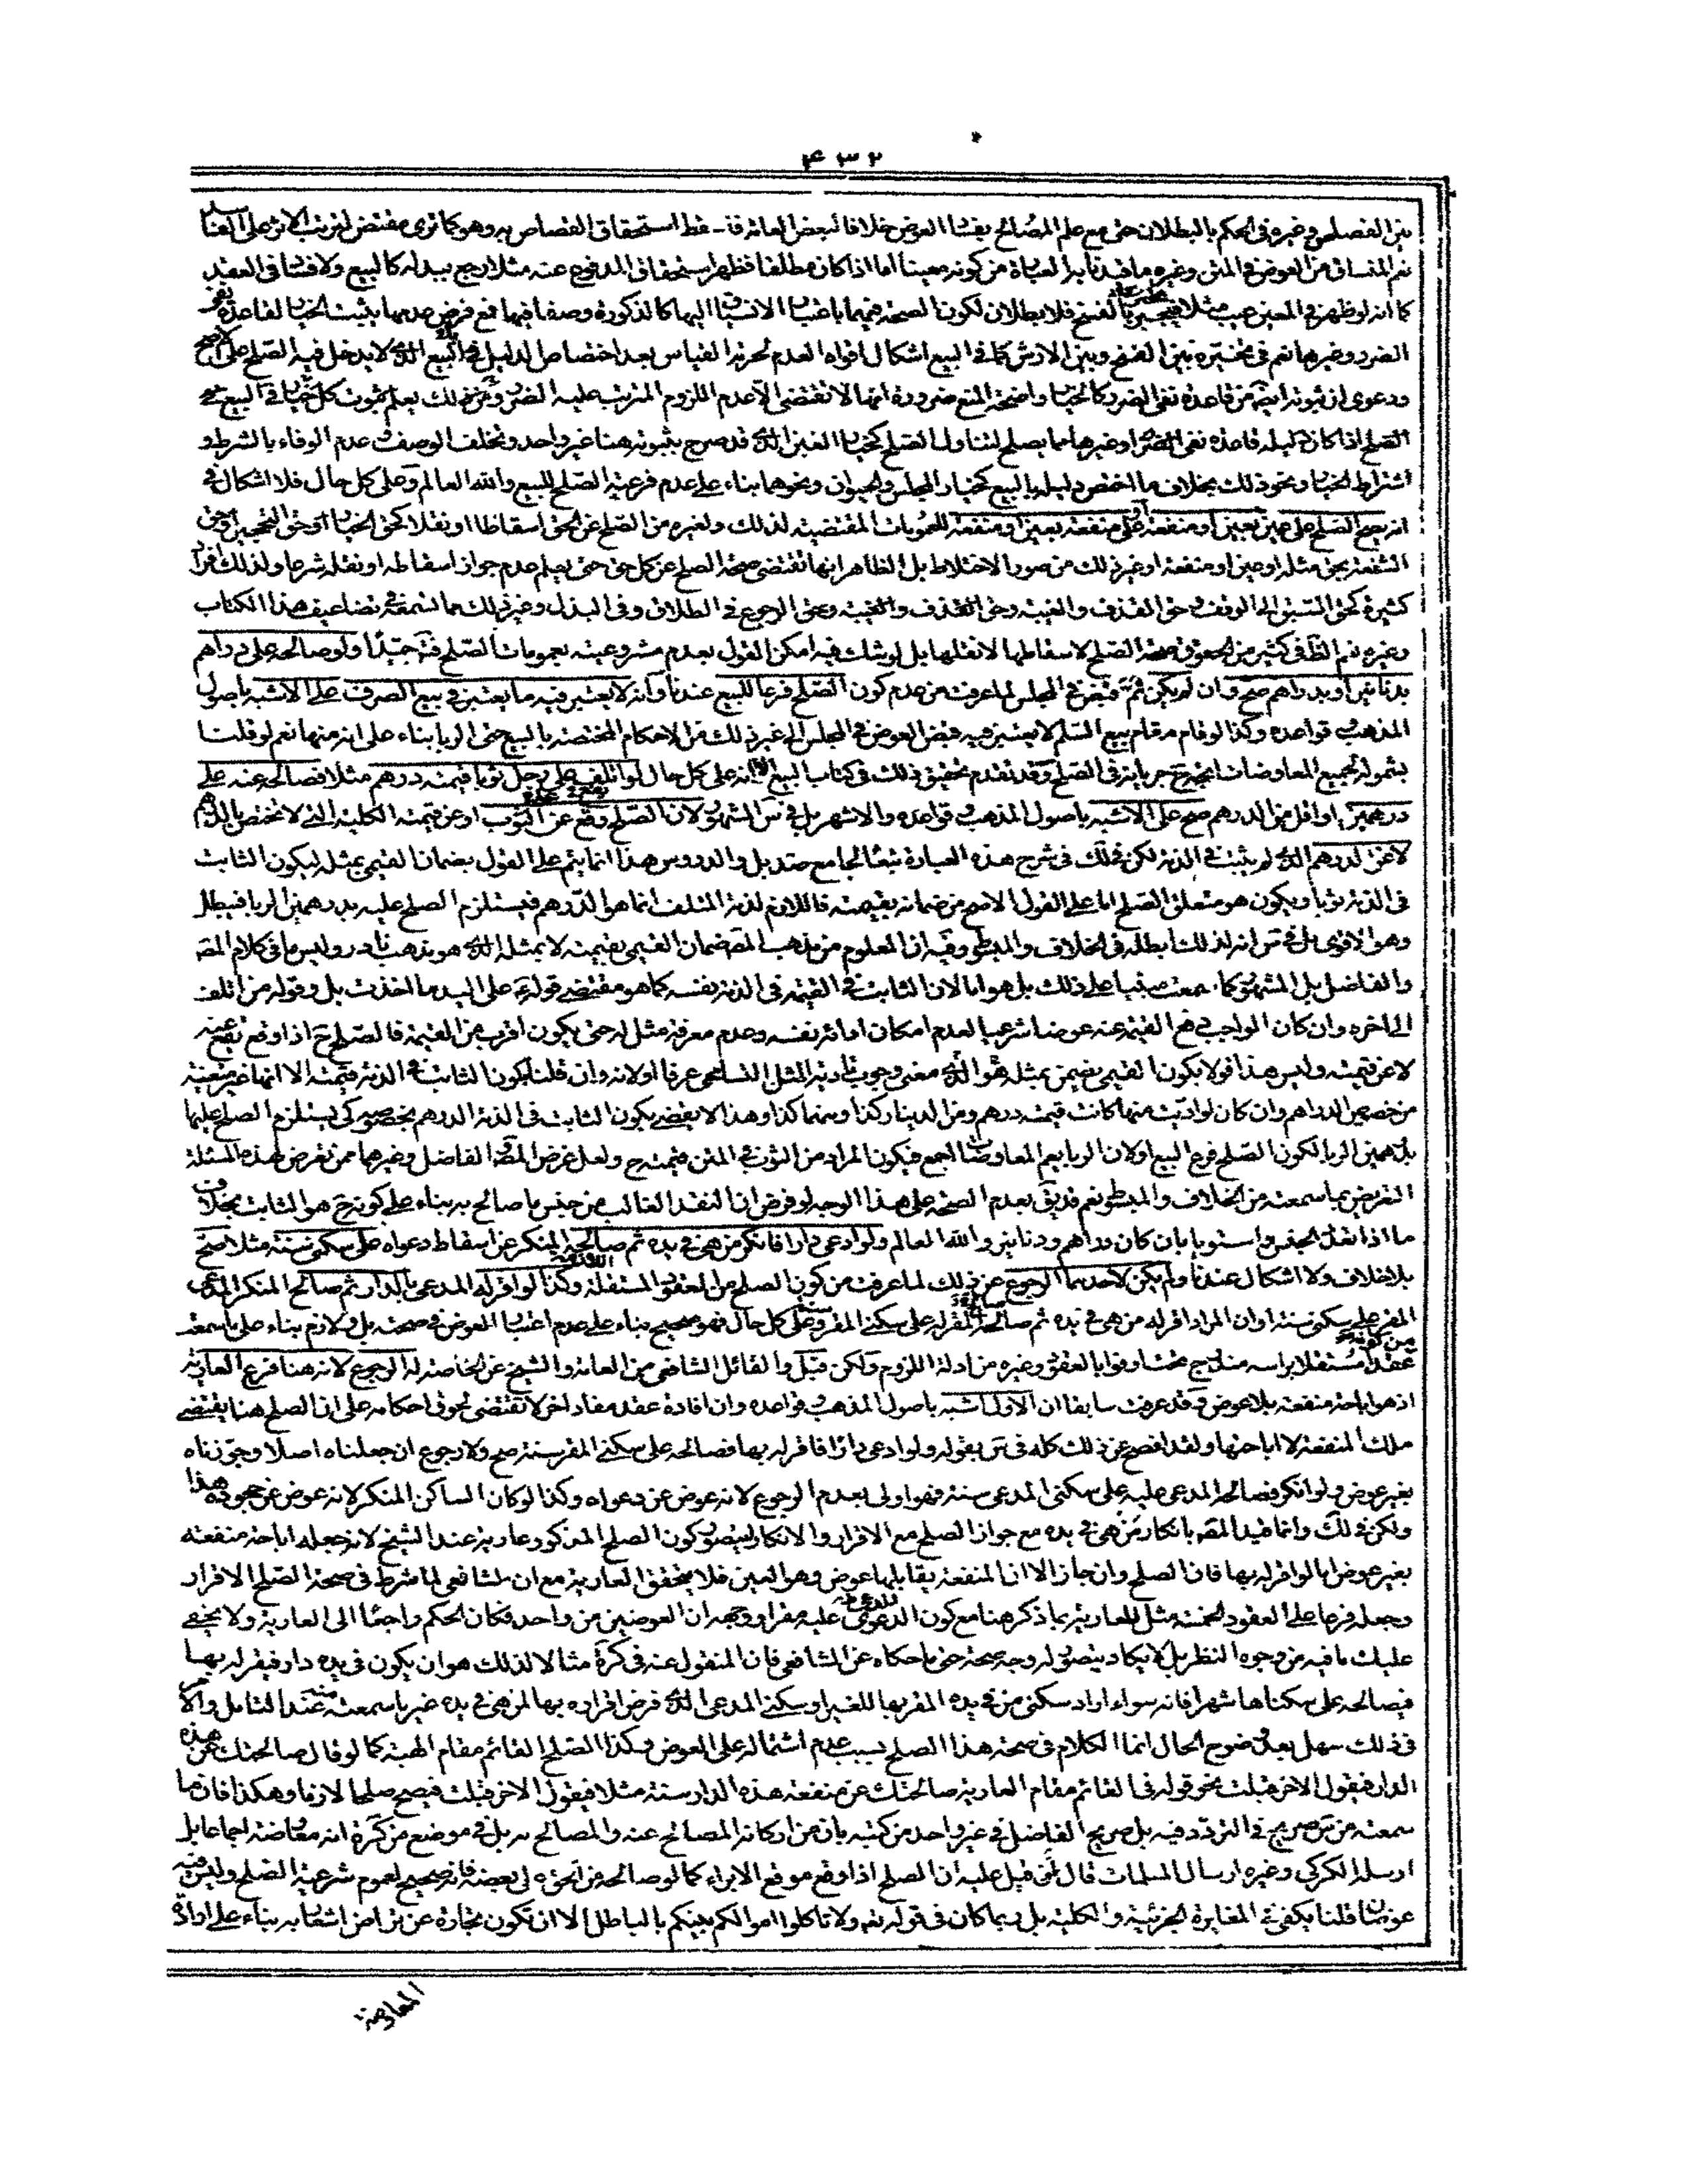 ٤٣٢
بين القصاص وغيره في الحكم بالبطلان حتى مع علم المصالح بفساد العوض خلافا لبعض العامة فاسقط استحقاق القصاص به وهو كما ترى مقتض لترتب الاثر على الفاسد
نعم المنساق من العوض في المتن وغيره ما قيدنا به العبارة من كونه معينا اما اذا كان مطلقا فظهر استحقاق المدفوع عنه مثلا رجع ببدله كالبيع ولا فساد في العقد
كما انه لو ظهر في المعين عيب مثلا فتخير بالفسخ فلا بطلان لكون الصحة فيهما باعتبار الانسياق اليها كالمذكورة وصفا فيها فمع فرض عدمها يثبت الخيار لقاعدة نفى
الضرر وغيرها نعم في تخييره بين الفسخ وبين الارش كما في البيع اشكال اقواه العدم لحرمة القياس بعد اختصاص الدليل في البيع الذي لا يدخل فيه الصلح على الاصح
ودعوى ان ثبوته ايضا من قاعدة نفى الضرر كالخيار واضحة المنع ضرورة انها لا تقتضى الا عدم اللزوم المترتب عليه الضرر ومن ذلك يعلم ثبوت كل خيار في البيع في
الصلح اذا كان دليله قاعدة نفى الضرر او غيرها مما يصلح لتناول الصلح كخيار الغبن الذي قد صرح بثبوته هنا غير واحد وتخلف الوصف وعدم الوفاء بالشرط و
اشتراط الخيار ونحو ذلك بخلاف ما اختص دليله بالبيع كخيار المجلس والحيوان ونحوهما بناء على عدم فرعية الصلح للبيع والله العالم وعلى كل حال فلا اشكال في
انه يصح الصلح على عين بعين او منفعة وعلى منفعة بعين او منفعة للعمومات المقتضية لذلك ولغيره من الصلح عن الحق اسقاطا او نقلا كحق الخيار او حق التحجير او حق
الشفعة بحق مثله او عين او منفعة او غير ذلك من صور الاختلاط بل الظاهر انها تقتضى صحة الصلح عن كل حق حتى يعلم عدم جواز اسقاطه او نقله شرعا ولذلك افراد
كثيرة كحق السبق الى الوقف وحق القذف والغيبة وحق الرجوع في الطلاق وفى البذل وغير ذلك مما تسمعه في تضاعيف هذا الكتاب
وغيره نعم الظ في كثير من الحقوق صحة الصلح لاسقاطها لا نقلها بل لو شك فيه امكن القول بعدم مشروعيته بعمومات الصلح فتدبر جيدا ولو صالحه على دراهم
بدنانير او بدراهم صح وان لم يكن ثم تقبض في المجلس لما عرفت من عدم كون الصلح فرعا للبيع عندنا وانه لا يعتبر فيه ما يعتبر في بيع الصرف على الاشبه باصول
المذهب وقواعده وكذا لو قام مقام بيع السلم لا يعتبر فيه قبض العوض في المجلس الى غير ذلك من الاحكام المختصة بالبيع حتى الربا بناء على انه منها نعم لو قلنا
بشموله لجميع المعاوضات اتجه ح جريانه في الصلح وقد تقدم تحقيق ذلك في كتاب البيع انه على كل حال لو اتلف على رجل ثوبا قيمته درهم مثلا فصالحه عنه على
درهمين او اقل من الدرهم صح على الاشبه باصول المذهب وقواعده والاشهر بل في س المشهور لان الصلح وقع عن الثوب او عن قيمته الكلية التي لا تختص بالدرهم
لا عن الدرهم الذي لم يثبت في الذمة لكن في لك في شرح هذه العبارة تبعا لجامع صد بل والدروس هذا انما يتم على القول بضمان القيمي بمثله ليكون الثابت
في الذمة ثوبا ويكون هو متعلق الصلح اما على القول الاصح من ضمانه بقيمته فاللازم لذمة المتلف انما هو الدرهم فيستلزم الصلح عليه بدرهمين الربا فيبطل
وهو الاقوى بل في س انه لذلك ابطله في الخلاف والمبسوط وفيه ان المعلوم من مذهب المص ضمان القيمي بقيمته لا بمثله الذي هو مذهب نادر وليس ما في كلام المص
والفاضل بل المشهور كما سمعت مبنيا على ذلك بل هو اما لان الثابت في القيمي في الذمة نفسه كما هو مقتضى قوله ع على اليد ما اخذت بل وقوله من اتلف
الى اخره وان كان الواجب في هم القيمة عنه عوضا شرعيا لعدم امكان ادائه بنفسه وعدم معرفة مثل له حتى يكون اقرب من القيمة فالصلح ح اذا وقع يقع عنه
لا عن قيمته وليس هذا قولا بكون القيمي يضمن بمثله فهو الذي معنى وجوب تادية المثل التسامحي عرفا اولانه وان قلنا بكون الثابت في الذمة قيمته الا انها غير متعينة
من خصوص الدراهم وان كان لو اديت منها كانت قيمته درهم ومن الدينار كذا ومنهما كذا وهذا لا يقضى بكون الثابت في الذمة الدرهم بخصوصه كي يستلزم الصلح عليها
بدرهمين الربا لكون الصلح فرع البيع او لان الربا يعم المعاوضات اجمع فيكون المراد من الثوب في المتن قيمته ح ولعل غرض المص والفاضل وغيرهما ممن تعرض لهذه المسئلة
التعريض بما سمعته من الخلاف والمبسوط نعم قد يق بعدم الصحة على هذا الوجه لو فرض ان النقد الغالب من جنس ما صالح به بناء على كونه ح هو الثابت بخلاف
ما اذا تعدد الجنس واستويا بان كان دراهم ودنانير والله العالم ولو ادعى دارا فانكر من هي في يده ثم صالحه المنكر عن اسقاط دعواه على سكنى سنة مثلا صح
بلا خلاف ولا اشكال عندنا ولم يكن لاحدهما الرجوع عن ذلك لما عرفت من كون الصلح من العقود المستقلة اللازمة وكذا لو اقر له المدعى بالدار ثم صالح المنكر المدعى
المقر على سكنى سنة او ان المراد اقر له من هي في يده ثم صالحه المقر له على سكنى المقر سنة وعلى كل حال فهو صحيح بناء على عدم اعتبار العوض في صحته بل ولازم بناء على ما سمعت من كونه
عقدا مستقلا براسه مندرج تحت اوفوا بالعقود وغيره من ادلة اللزوم ولكن قيل والقائل الشافعي من العامة والشيخ من الخاصة له الرجوع لانه هنا فرع العارية
اذ هو اباحة منفعة بلا عوض وقد عرفت سابقا ان الاول اشبه باصول المذهب وقواعده وان افادة عقد مفاد اخر لا تقتضى لحوق احكامه على ان الصلح هنا يقتضى
ملك المنفعة لا اباحتها ولقد افصح عن ذلك كله في س بقوله ولو ادعى دارا فاقر له بها فصالحه على سكنى المقر سنة صح ولا رجوع ان جعلناه اصلا وجوزناه
بغير عوض ولو انكر فصالحه المدعى عليه على سكنى المدعى سنة فهو اولى بعدم الرجوع لانه عوض عن دعواه وكذا لو كان الساكن المنكر لانه عوض عن جحوده هذا
ولكن في لك وانما قيد المص بانكار من هي في يده مع جواز الصلح مع الاقرار والانكار ليتصور كون الصلح المذكور عارية عند الشيخ لانه جعله اباحة منفعة
بغير عوض اما لو اقر له بها فان الصلح وان جاز الا ان المنفعة يقابلها عوض وهو العين فلا يتحقق العارية مع ان الشافعي لما شرط في صحة الصلح الاقرار
وجعله فرعا على العقود الخمسة مثل للعارية بما ذكر هنا مع كون المدعى عليه مقرا ووجهه ان العوضين من واحد فكان الحكم راجعا الى العارية ولا يخفى
عليك ما فيه من وجوه النظر بل لا يكاد يتصور له وجه صحة حتى ما حكاه عن الشافعي فان المنقول عنه في كرة مثالا لذلك هو ان يكون في يده دار فيقر له بها
فيصالحه على سكناها شهرا فانه سواء اراد سكنى من في يده المقر بها للغير او سكنى المدعى الذي فرض اقراره بها لمن هي في يده غير ما سمعته منه عند التامل والامر
في ذلك سهل بعد وضوح الحال انما الكلام في صحة هذا الصلح بسبب عدم اشتماله على العوض وكذا الصلح القائم مقام الهبة كما لو قال صالحتك عن هذه
الدار فيقول الاخر قبلت نحو قوله في القائم مقام العارية صالحتك عن منفعة هذه الدار سنة مثلا فيقول الاخر قبلت فيصح صلحا لازما وهكذا فان ما
سمعته من س صريح في التردد فيه بل صريح الفاضل في غير واحد من كتبه بان من اركانه المصالح عنه والمصالح به بل في موضع من كرة انه معاوضة اجماعا بل
ارسله الكركي وغيره ارسال المسلمات قال فان قيل عليه ان الصلح اذا وقع موقع الابراء كما لو صالحه من الحق على بعضه فانه صحيح لعموم شرعية الصلح وليس فيه
عوضان قلنا يكفى في المغايرة الجزئية والكلية بل ربما كان في قوله تعالى ولا تاكلوا اموالكم بينكم بالباطل الا ان تكون تجارة عن تراض اشعار به بناء على ارادة
المعاوضة